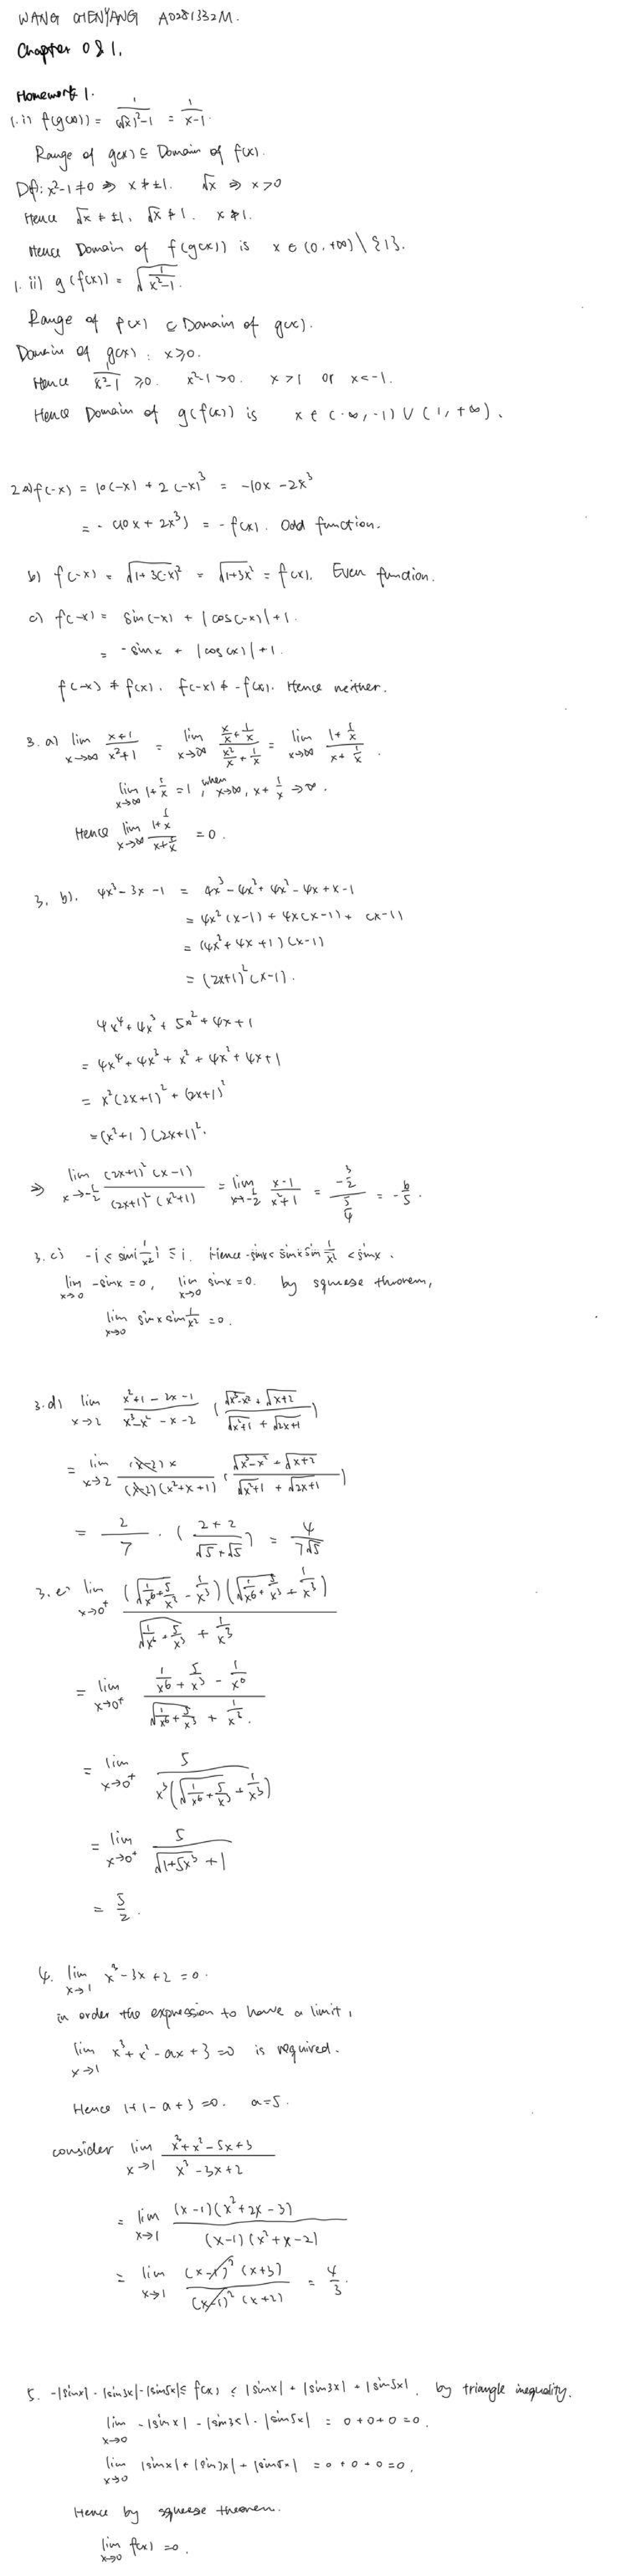 WANG CHENYANG A0281332M.
Chapter 0 & 1.
Homework 1.
1. i) f(g(x)) = 1/((√x)²-1) = 1/(x-1).
Range of g(x) ⊆ Domain of f(x).
Df: x²-1≠0 ⇒ x≠±1. √x ⇒ x>0
Hence √x ≠ ±1, √x ≠ 1. x≠1.
Hence Domain of f(g(x)) is x ∈ (0, +∞) \ {1}.
1. ii) g(f(x)) = √(1/(x²-1)).
Range of f(x) ⊆ Domain of g(x).
Domain of g(x): x≥0.
Hence 1/(x²-1) ≥0. x²-1>0. x>1 or x<-1.
Hence Domain of g(f(x)) is x ∈ (-∞, -1) ∪ (1, +∞).
2 a) f(-x) = 10(-x) + 2(-x)³ = -10x - 2x³
= -(10x + 2x³) = -f(x). Odd function.
b) f(-x) = √(1+3(-x)²) = √(1+3x²) = f(x). Even function.
c) f(-x) = sin(-x) + |cos(-x)| + 1.
= -sinx + |cos(x)| + 1.
f(-x) ≠ f(x). f(-x) ≠ -f(x). Hence neither.
3. a) lim x→∞ (x+1)/(x²+1) = lim x→∞ (x/x + 1/x)/(x²/x + 1/x) = lim x→∞ (1+1/x)/(x+1/x).
lim x→∞ 1+1/x = 1, when x→∞, x+1/x → ∞.
Hence lim x→∞ (1+1/x)/(x+1/x) = 0.
3. b). 4x³-3x-1 = 4x³-4x²+4x²-4x+x-1
= 4x²(x-1) + 4x(x-1) + (x-1)
= (4x²+4x+1)(x-1)
= (2x+1)²(x-1).
4x⁴+4x³+5x²+4x+1
= 4x⁴+4x³+x²+4x²+4x+1
= x²(2x+1)²+(2x+1)²
= (x²+1)(2x+1)².
⇒ lim x→-1/2 (2x+1)²(x-1)/((2x+1)²(x²+1)) = lim x→-1/2 (x-1)/(x²+1) = (-3/2)/(5/4) = -6/5.
3. c) -1 ≤ sin(1/x²) ≤ 1. Hence -sinx < sinx sin 1/x² < sinx.
lim x→0 -sinx = 0, lim x→0 sinx = 0. by squeese theorem,
lim x→0 sinx sin 1/x² = 0.
3. d) lim x→2 (x²+1-2x-1)/(x³-x²-x-2) ((√(x³-x²)+√(x+2))/(√(x²+1)+√(2x+1)))
= lim x→2 (x-2)x/((x-2)(x²+x+1)) ((√(x³-x²)+√(x+2))/(√(x²+1)+√(2x+1)))
= 2/7 · ((2+2)/(√5+√5)) = 4/(7√5)
3. e) lim x→0⁺ (√(1/x⁶+5/x³) - 1/x³)(√(1/x⁶+5/x³) + 1/x³)/(√(1/x⁶+5/x³) + 1/x³)
= lim x→0⁺ (1/x⁶+5/x³-1/x⁶)/(√(1/x⁶+5/x³) + 1/x³).
= lim x→0⁺ 5/(x³(√(1/x⁶+5/x³)+1/x³))
= lim x→0⁺ 5/(√(1+5x³)+1)
= 5/2.
4. lim x→1 x³-3x+2 = 0.
in order the expression to have a limit,
lim x→1 x³+x²-ax+3=0 is required.
Hence 1+1-a+3=0. a=5.
consider lim x→1 (x³+x²-5x+3)/(x³-3x+2)
= lim x→1 (x-1)(x²+2x-3)/((x-1)(x²+x-2))
= lim x→1 (x-1)²(x+3)/((x-1)²(x+2)) = 4/3.
5. -|sinx|-|sin3x|-|sin5x| ≤ f(x) ≤ |sinx|+|sin3x|+|sin5x|. by triangle inequality.
lim x→0 -|sinx|-|sin3x|-|sin5x| = 0+0+0=0.
lim x→0 |sinx|+|sin3x|+|sin5x| = 0+0+0=0.
Hence by squeese theorem.
lim x→0 f(x) = 0.